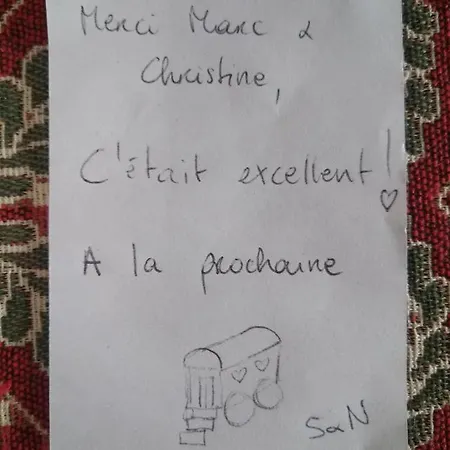 Merci Marc &
Christine,
C'était excellent!
A la prochaine
S&N